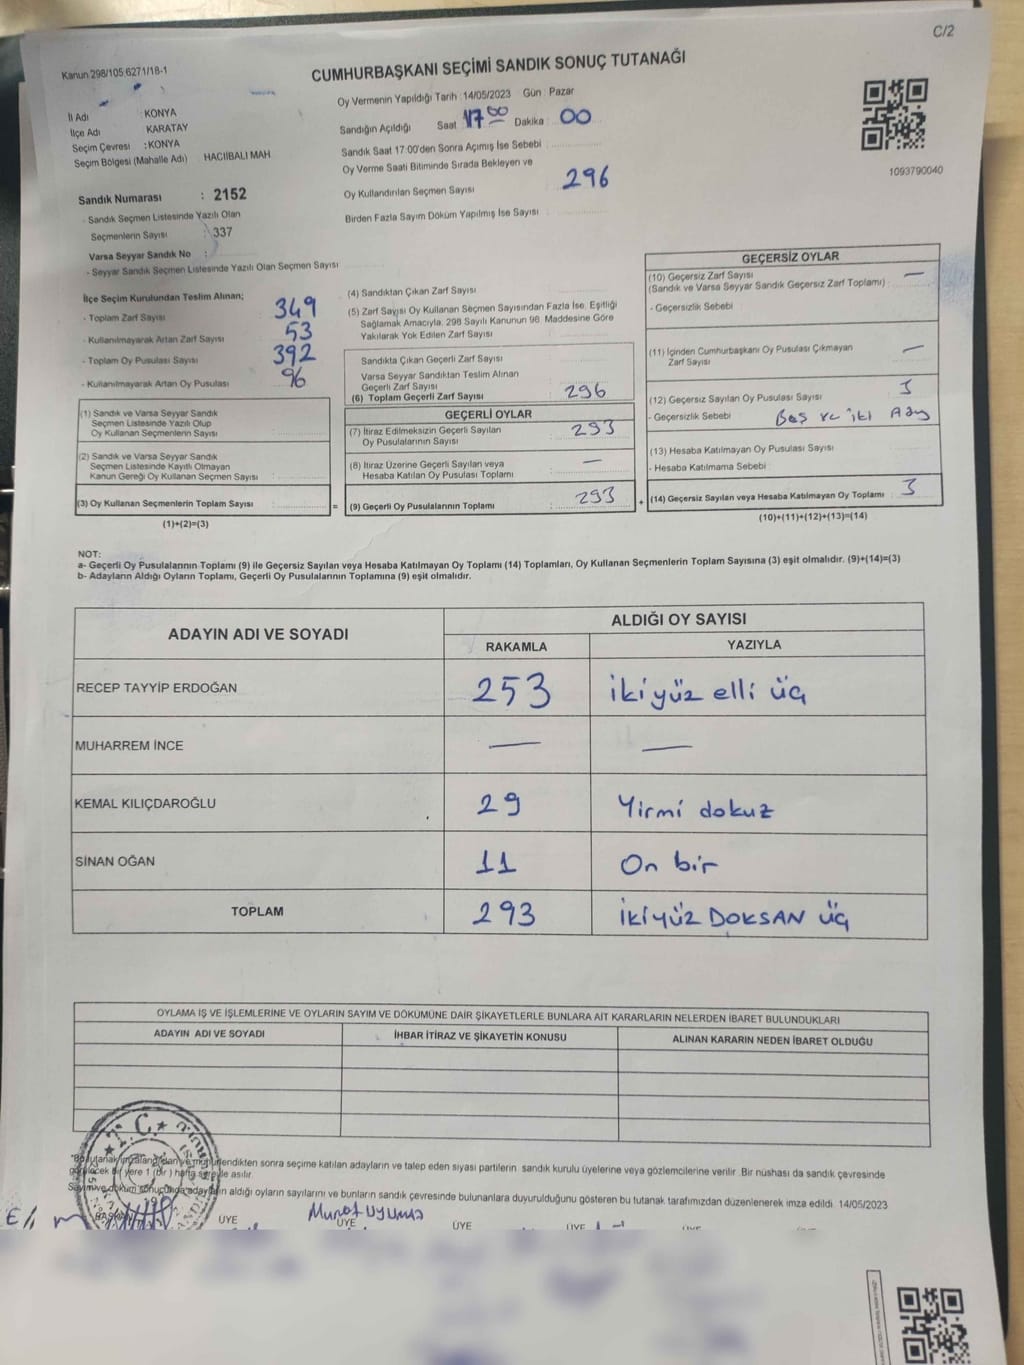 C/2
Kanun 298/105 6271/18-1
CUMHURBAŞKANI SEÇİMİ SANDIK SONUÇ TUTANAĞI
Oy Vermenin Yapıldığı Tarih :14/05/2023 Gün : Pazar
İl Adı : KONYA
İlçe Adı KARATAY
Seçim Çevresi : KONYA
Seçim Bölgesi (Mahalle Adı) HACIİBALI MAH
Sandığın Açıldığı Saat 17 00 Dakika : 00
Sandık Saat 17:00'den Sonra Açımış İse Sebebi
Oy Verme Saati Bitiminde Sırada Bekleyen ve
Oy Kullandırılan Seçmen Sayısı 296
Birden Fazla Sayım Döküm Yapılmış İse Sayısı
1093790040
Sandık Numarası : 2152
- Sandık Seçmen Listesinde Yazılı Olan
Seçmenlerin Sayısı : 337
Varsa Seyyar Sandık No :
- Seyyar Sandık Seçmen Listesinde Yazılı Olan Seçmen Sayısı
İlçe Seçim Kurulundan Teslim Alınan;
- Toplam Zarf Sayısı 349
- Kullanılmayarak Artan Zarf Sayısı 53
- Toplam Oy Pusulası Sayısı 392
- Kullanılmayarak Artan Oy Pusulası 96
(1) Sandık ve Varsa Seyyar Sandık
Seçmen Listesinde Yazılı Olup
Oy Kullanan Seçmenlerin Sayısı
(2) Sandık ve Varsa Seyyar Sandık
Seçmen Listesinde Kayıtlı Olmayan
Kanun Gereği Oy Kullanan Seçmen Sayısı
(3) Oy Kullanan Seçmenlerin Toplam Sayısı
(1)+(2)=(3)
(4) Sandıktan Çıkan Zarf Sayısı
(5) Zarf Sayısı Oy Kullanan Seçmen Sayısından Fazla İse, Eşitliği
Sağlamak Amacıyla, 298 Sayılı Kanunun 98. Maddesine Göre
Yakılarak Yok Edilen Zarf Sayısı
Sandıkta Çıkan Geçerli Zarf Sayısı
Varsa Seyyar Sandıktan Teslim Alınan
Geçerli Zarf Sayısı
(6) Toplam Geçerli Zarf Sayısı 296
GEÇERLİ OYLAR
(7) İtiraz Edilmeksizin Geçerli Sayılan
Oy Pusulalarının Sayısı 293
(8) İtiraz Üzerine Geçerli Sayılan veya
Hesaba Katılan Oy Pusulası Toplamı —
= (9) Geçerli Oy Pusulalarının Toplamı 293
GEÇERSİZ OYLAR
(10) Geçersiz Zarf Sayısı —
(Sandık ve Varsa Seyyar Sandık Geçersiz Zarf Toplamı)
- Geçersizlik Sebebi
(11) İçinden Cumhurbaşkanı Oy Pusulası Çıkmayan
Zarf Sayısı —
(12) Geçersiz Sayılan Oy Pusulası Sayısı 3
- Geçersizlik Sebebi Boş ve iki Aday
(13) Hesaba Katılmayan Oy Pusulası Sayısı
- Hesaba Katılmama Sebebi
+ (14) Geçersiz Sayılan veya Hesaba Katılmayan Oy Toplamı 3
(10)+(11)+(12)+(13)=(14)
NOT:
a- Geçerli Oy Pusulalarının Toplamı (9) ile Geçersiz Sayılan veya Hesaba Katılmayan Oy Toplamı (14) Toplamları, Oy Kullanan Seçmenlerin Toplam Sayısına (3) eşit olmalıdır. (9)+(14)=(3)
b- Adayların Aldığı Oyların Toplamı, Geçerli Oy Pusulalarının Toplamına (9) eşit olmalıdır.
ADAYIN ADI VE SOYADI ALDIĞI OY SAYISI
RAKAMLA YAZIYLA
RECEP TAYYİP ERDOĞAN 253 iki yüz elli üç
MUHARREM İNCE — —
KEMAL KILIÇDAROĞLU 29 Yirmi dokuz
SİNAN OĞAN 11 On bir
TOPLAM 293 İKİYÜZ DOKSAN ÜÇ
OYLAMA İŞ VE İŞLEMLERİNE VE OYLARIN SAYIM VE DÖKÜMÜNE DAİR ŞİKAYETLERLE BUNLARA AİT KARARLARIN NELERDEN İBARET BULUNDUKLARI
ADAYIN ADI VE SOYADI İHBAR İTİRAZ VE ŞİKAYETİN KONUSU ALINAN KARARIN NEDEN İBARET OLDUĞU
T.C.
sonra seçime katılan adayların ve talep eden siyasi partilerin sandık kurulu üyelerine veya gözlemcilerine verilir. Bir nüshası da sandık çevresinde
bir yere 1 (bir) hafta süreyle asılır.
Sayım ve döküm sonucunda adayların aldığı oyların sayılarını ve bunların sandık çevresinde bulunanlara duyurulduğunu gösteren bu tutanak tarafımızdan düzenlenerek imza edildi. 14/05/2023
BAŞKAN ÜYE ÜYE ÜYE ÜYE
Murat